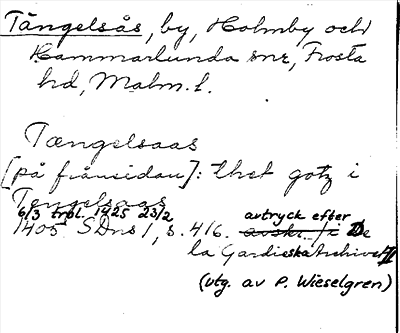 Tängelsås, by, Holmby och
Hammarlunda snr, Frosta
hd, Malm. l.
Tængelsaas
[på frånsidan]: thet gotz i
Tengelsaas
6/3 trol. 1425 23/2
1405 SDns 1, s. 416. avtryck efter
avskr. i De
la Gardieska Archivet II
(utg. av P. Wieselgren)